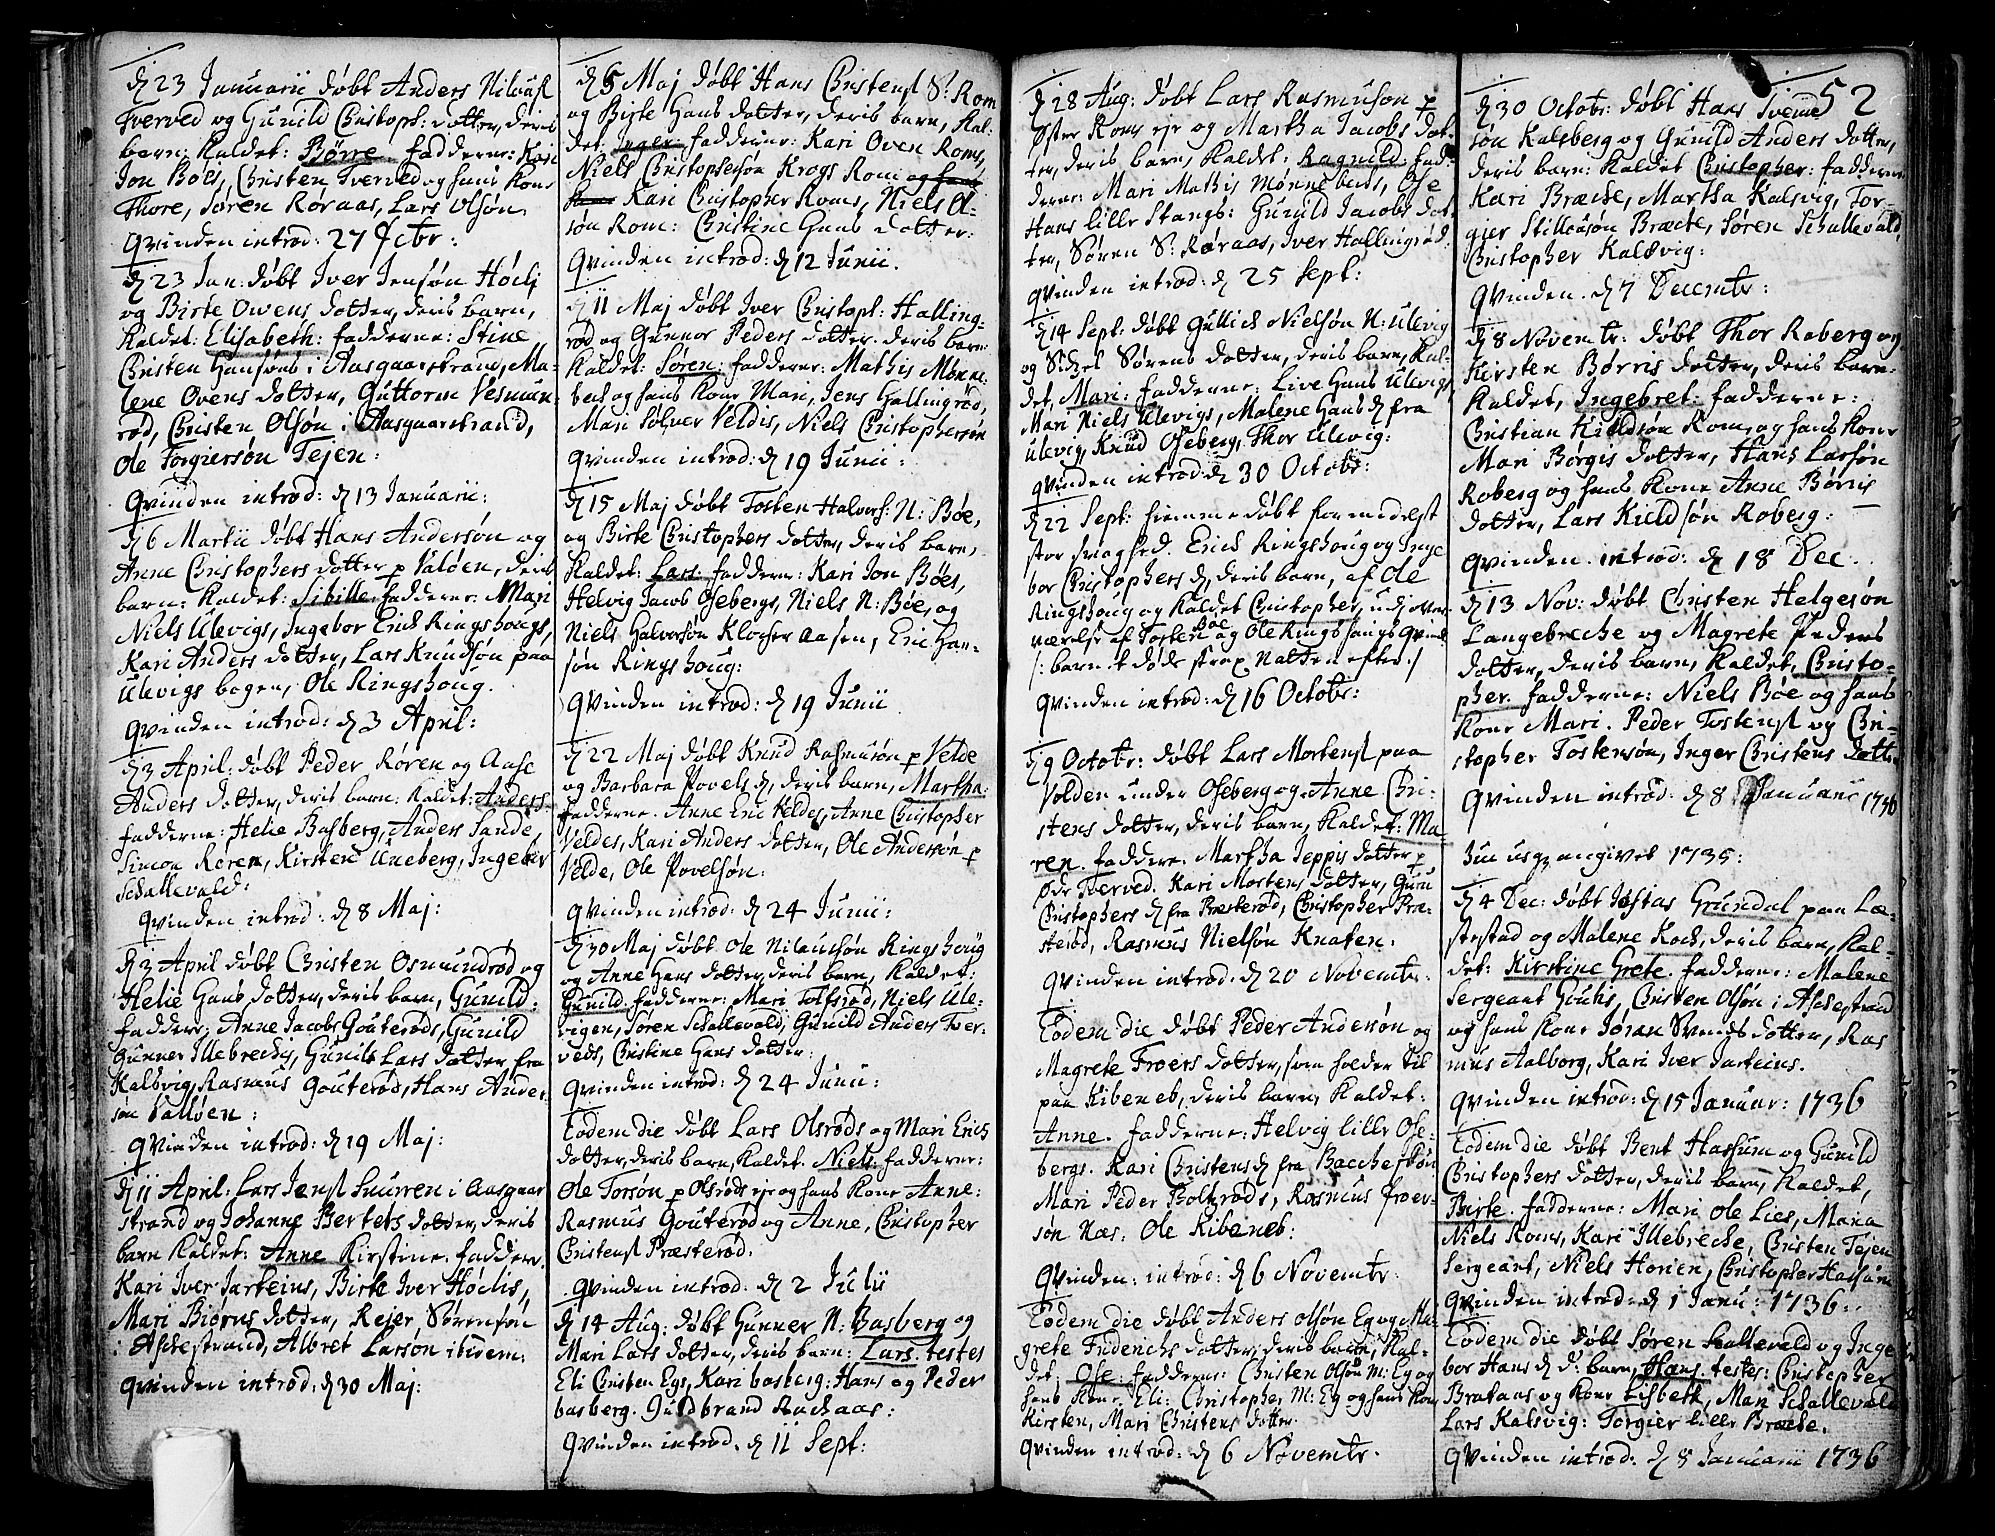 d 23 Januarii døbt Anders Nilsøn
Tverved og Gunild Christoph: dotter, deris
barn: kaldet: Børre fadderne: Kari
Jon Bøes, Christen Tverved og hans kone
Thore, Søren Røraas, Lars Olsøn.
Qvinden introd: 27 Febr:
d 23 Jan: døbt Iver Jensøn Høeli
og Birte Owens dotter, deris barn,
kaldet: Elisabeth: fadderne: Stine
Christen Hansøns i Aasgaarstrand, Ma-
lene Ovens dotter, Guttorm Vesmun-
rød, Christen Olsøn i Aasgaarstrand,
Ole Torgiersøn Tejen:
Qvinden introd: d 13 Januarii:
d 6 Martii døbt Hans Andersøn og
Anne Christophers dotter p Valøen, deris
barn: kaldet: Sibille: fadderne: Mari
Niels Ulevigs, Ingebor Erich Ringshougs,
Kari Anders dotter, Lars Knudsøn paa
Ulevigs bogen, Ole Ringshoug.
Qvinden introd: d 3 April:
d 3 April: døbt Peder Røren og Aase
Anders dotter, deris barn: kaldet: Anders
fadderne: Helie Basberg, Anders Sande,
Simon Røren, Kirsten Uneberg, Ingebor
Schallevald:
Qvinden introd: d 8 Maj:
d 3 April døbt Christen Osmundrød og
Helie Hans dotter, deris barn, Gunild:
faddere: Anne Jacobs Gouterøds, Gunild
Gunner Illebrechis, Gunild Lars dotter fra
Kalsvig, Rasmus Gouterød, Hans Ander
søn Valløen:
Qvinden introd: d 19 Maj:
d 11 April: Lars Jensøn Snurren i Aasgaar
strand og Johanne Berters dotter, deris
barn kaldet: Anne Kirstine. faddere.
Kari Iver Jarteins, Birte Iver Høelis,
Mari Biørns dotter, Rejer Sørensøn
i Aschestrand, Albret Larsøn ibidem:
Qvinden introd: d 30 Maj:
d 5 Maj døbt Hans Christensøn S: Rom
og Birte Hans dotter, deris barn, kal-
det: Inger fadderne: Kari Oven Roms,
Niels Christophersøn Krogs Rom og hans
kone Kari Christopher Roms, Niels Ol-
søn Rom: Christine Hans dotter:
Qvinden introd: d 12 Junii.
d 11 Maj døbt Iver Christoph: Halling-
rød og Gunnor Peders dotter. deris barn
kaldet: Søren: fadderne: Mathis Mønne-
bech og hans kone Mari, Jens Hallingrød,
Mari Sølver Veldis, Niels Christophersøn
Qvinden introd: d 19 Junii:
d 15 Maj døbt Tosten Halvors: N: Bøe,
og Birte Christophers dotter, deris barn,
kaldet: Lars. fadderne: Kari Jon Bøes,
Helvig Jacob Osebergs, Niels N: Bøe, og
Niels Halvorsøn Klocher aasen, Eric Han-
søn Ringshoug:
Qvinden introd: d 19 Junii
d 22 Maj døbt Knud Rasmusøn p Velde
og Barbara Povels d, deris barn, Martha:
fadderne. Anne Eric Veldes, Anne Christopher
Veldes, Kari Anders dotter, Ole Andersøn p
Velde, Ole Povelsøn:
Qvinden introd: d 24 Junii:
d 30 Maj døbt Ole Nilausøn Ringshoug
og Anne Hans dotter, deris barn, kaldet:
Gunild. fadderne: Mari Tolfsrød, Niels Ule-
vigen, Søren Schallevald, Gunild Anders Tver-
veds, Christine Hans dotter:
Qvinden introd: d 24 Junii:
Eodem die døbt Lars Olsrøds og Mari Erichs
dotter, deris barn, kaldet. Niels: fadderne:
Ole Torsøn p Olsrøds eje og hans kone Anne:
Rasmus Gouterød og Anne, Christopher
Christensøn Præsterød:
Qvinden introd: d 2 Julii
d 14 Aug: døbt Gunner N: Basberg og
Mari Lars dotter, deris barn: Lars. testes
Eli Christen Egs, Kari basberg: Hans og Peder
basberg. Guldbrand Aachaas:
Qvinden introd. d 11 Sept:
d 28 Aug: døbt Lars Rasmusøn p
Øster Roms eje og Martha Jacobs dot-
ter, deris barn, kaldet: Ragnild: fad-
derne: Mari Mathis Mønnebechs, Ose
Hans lille Stangs: Gunild Jacobs dot-
ter, Søren S: Røraas, Iver Hallingrød.
Qvinden introd: d 25 Sept:
d 14 Sept: døbt Gullich Nielsøn N: Ulevig
og Sidzel Sørens dotter, deris barn, kal-
det, Mari: fadderne: Live Hans Ulevigs,
Mari Niels Ulevigs, Malene Hans d fra
Ulevig, Knud Oseberg, Thor Ulevig:
Qvinden introd: d 30 Octobr:
d 22 Sept: hiemme døbt formedelst
stor svaghed. Erich Ringshoug og Inge
bor Christophers d, deris barn, af Ole
Ringshoug og kaldet Christopher, udj over-
værelse af Tosten Bøe og Ole Ringshougs Qvind
/: barnet døde strax Natten efter :/
Qvinden introd: d 16 Octobr:
d 9 Octobr: døbt Lars Mortensøn paa
Volden under Oseberg og Anne Chri-
stens dotter, deris barn, kaldet: Ma-
ren. faddere. Martha Jeppis dotter p
Øde Tverved. Kari Mortens dotter, Guru
Christophers d fra Præsterød, Christopher Præ-
sterød, Rasmus Nielsøn Knaken.
Qvinden introd: d 20 Novembr.
Eodem die døbt Peder Andersøn og
Magrete Froers dotter, som holder til
paa Kibeneb, deris barn, kaldet:
Anne. fadderne: Helvig lille Ose-
bergs. Kari Christens d fra Baccheskøn
Mari Peder Boltzrøds, Rasmus Froer-
søn Næs. Ole Kibeneb:
Qvinden: introd: d 6 Novembr:
Eodem die døbt Anders Olsøn Eg og Ma-
grete Friderichs dotter, deris barn, kal-
det, Ose: fadderne: Christen Olsøn M: Eg og
hans kone Eli: Christopher M: Eg og hans kone
Kirsten, Mari Christens dotter.
Qvinden introd: d 6 Novembr.
52
d 30 Octobr: døbt Hans Svenne
søn Kalsberg og Gunild Anders dotter,
deris barn: kaldet Christopher: fadderne
Kari Bræche, Martha Kalsvig, Tor-
gier Stillousøn Bræche, Søren Schallevald,
Christopher Kalsvig:
Qvinden d 7 Decembr:
d 8 Novembr: døbt Thor Roberg og
Kirsten Børris dotter, deris barn.
kaldet, Ingebret: fadderne:
Christian Kieldsøn Rom, og hans kone
Mari Børgis dotter, Hans Larsøn
Roberg og hans kone Anne Børris
dotter, Lars Kieldsøn Roberg:
Qvinden introd: d 18 Dec.
d 13 Nov: døbt Christen Helgesøn
Langebreche og Magrete Peders
dotter, deris barn, kaldet, Christo-
pher fadderne: Niels Bøe og hans
kone Mari. Peder Tostensøn og Chri-
stopher Tostensøn, Inger Christens dotter
Qvinden introd: d 8 Januarii 1736
angivet 1735:
d 4 Dec: døbt Justas Grundal paa Læ-
stestad og Malene Koch, deris barn, kal-
det: Kirstine Grete. fadderne: Malene
Sergeant Gouchs, Christen Olsøn i Aschestrand
og hans kone Jøran Svends dotter, Ras
mus Aalborg, Kari Iver Jarteins.
Qvinden introd: d 15 Januar: 1736
Eodem die døbt Bent Hassum og Gunild
Christophers dotter, deris barn, kaldet,
Birte. fadderne: Mari Ole Lies, Maria
Niels Roms, Kari Illebreche, Christen Tejen
Sergeant, Niels Horien, Christopher Hassum
Qvinden introd: d 1 Janu: 1736:
Eodem die døbt Søren Schallevald og Inge
bor Hans d d: barn, Hans. testes: Christopher
Brataas og kone Lisbeth, Mari Schallevald
Lars Kalsvig: Torgier lille Bræche.
Qvinden introd: d 8 Januarii 1736